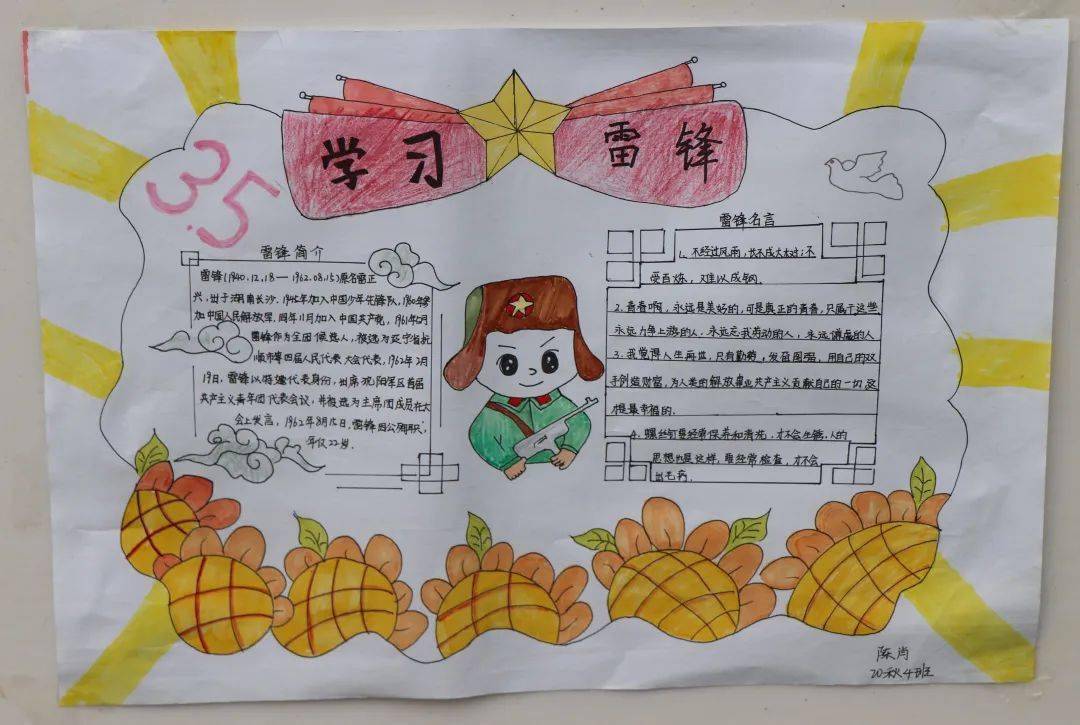 学习雷锋
3.5
雷锋简介
雷锋(1940.12.18—1962.08.15)原名雷正
兴,出于湖南长沙.1954年加入中国少年先锋队,1960年参
加中国人民解放军.同年11月加入中国共产党,1961年5月
雷锋作为全团候选人,被选为辽宁省抚
顺市第四届人民代表大会代表.1962年2月
19日,雷锋以特邀代表身份,出席沈阳军区首届
共产主义青年团代表会议,并被选为主席团成员在大
会上发言,1962年8月15日,雷锋因公殉职,
年仅22岁.
雷锋名言
1、不经过风雨,长不成大树;不
受百炼,难以成钢.
2.青春啊,永远是美好的,可是真正的青春,只属于这些
永远力争上游的人,永远忘我劳动的人,永远谦虚的人
3、我觉得人生再世,只有勤劳,发奋图强,用自己的双
手创造财富,为人类的解放事业共产主义贡献自己的一切,这
才是最幸福的.
4、螺丝钉要经常保养和清洗,才不会生锈.人的
思想也是这样,要经常检查,才不会
出毛病.
陈肖
20秋4班